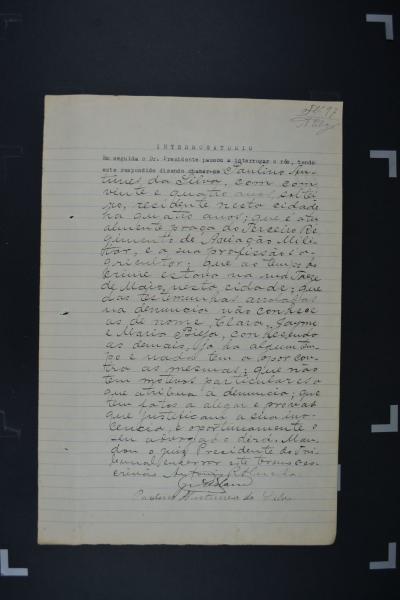 INTERROGATORIO
Em seguida o Dr. Presidente passou a interrogar o réo, tendo
este respondido dizendo chamar-se Paulino An-
tunes da Silva, com
vinte e quatro annos, soltei-
ro, residente nesta cidade
ha quatro annos; que é atu-
almente praça do Terceiro Re-
gimento de Aviação Mili-
tar, e a sua profissão é a-
gricultor; que ao tempo do
crime estava na rua Treze
de Maio, nesta cidade; que
das testemunhas arroladas
na denuncia não conhece
as de nome Clara, Jayme
e Maria, conhecendo
as demais, ha algum tem-
po e nada tem a opor con-
tra as mesmas; que não
tem motivos particulares a
que atribua a denuncia; que
tem fatos a alegar e provas
que justificam a sua ino-
cencia, e oportunamente o
seu advogado dirá. Man-
dou o juiz Presidente do Tri-
bunal encerrar este termo. Es-
crivão
Paulino Antunes da Silva